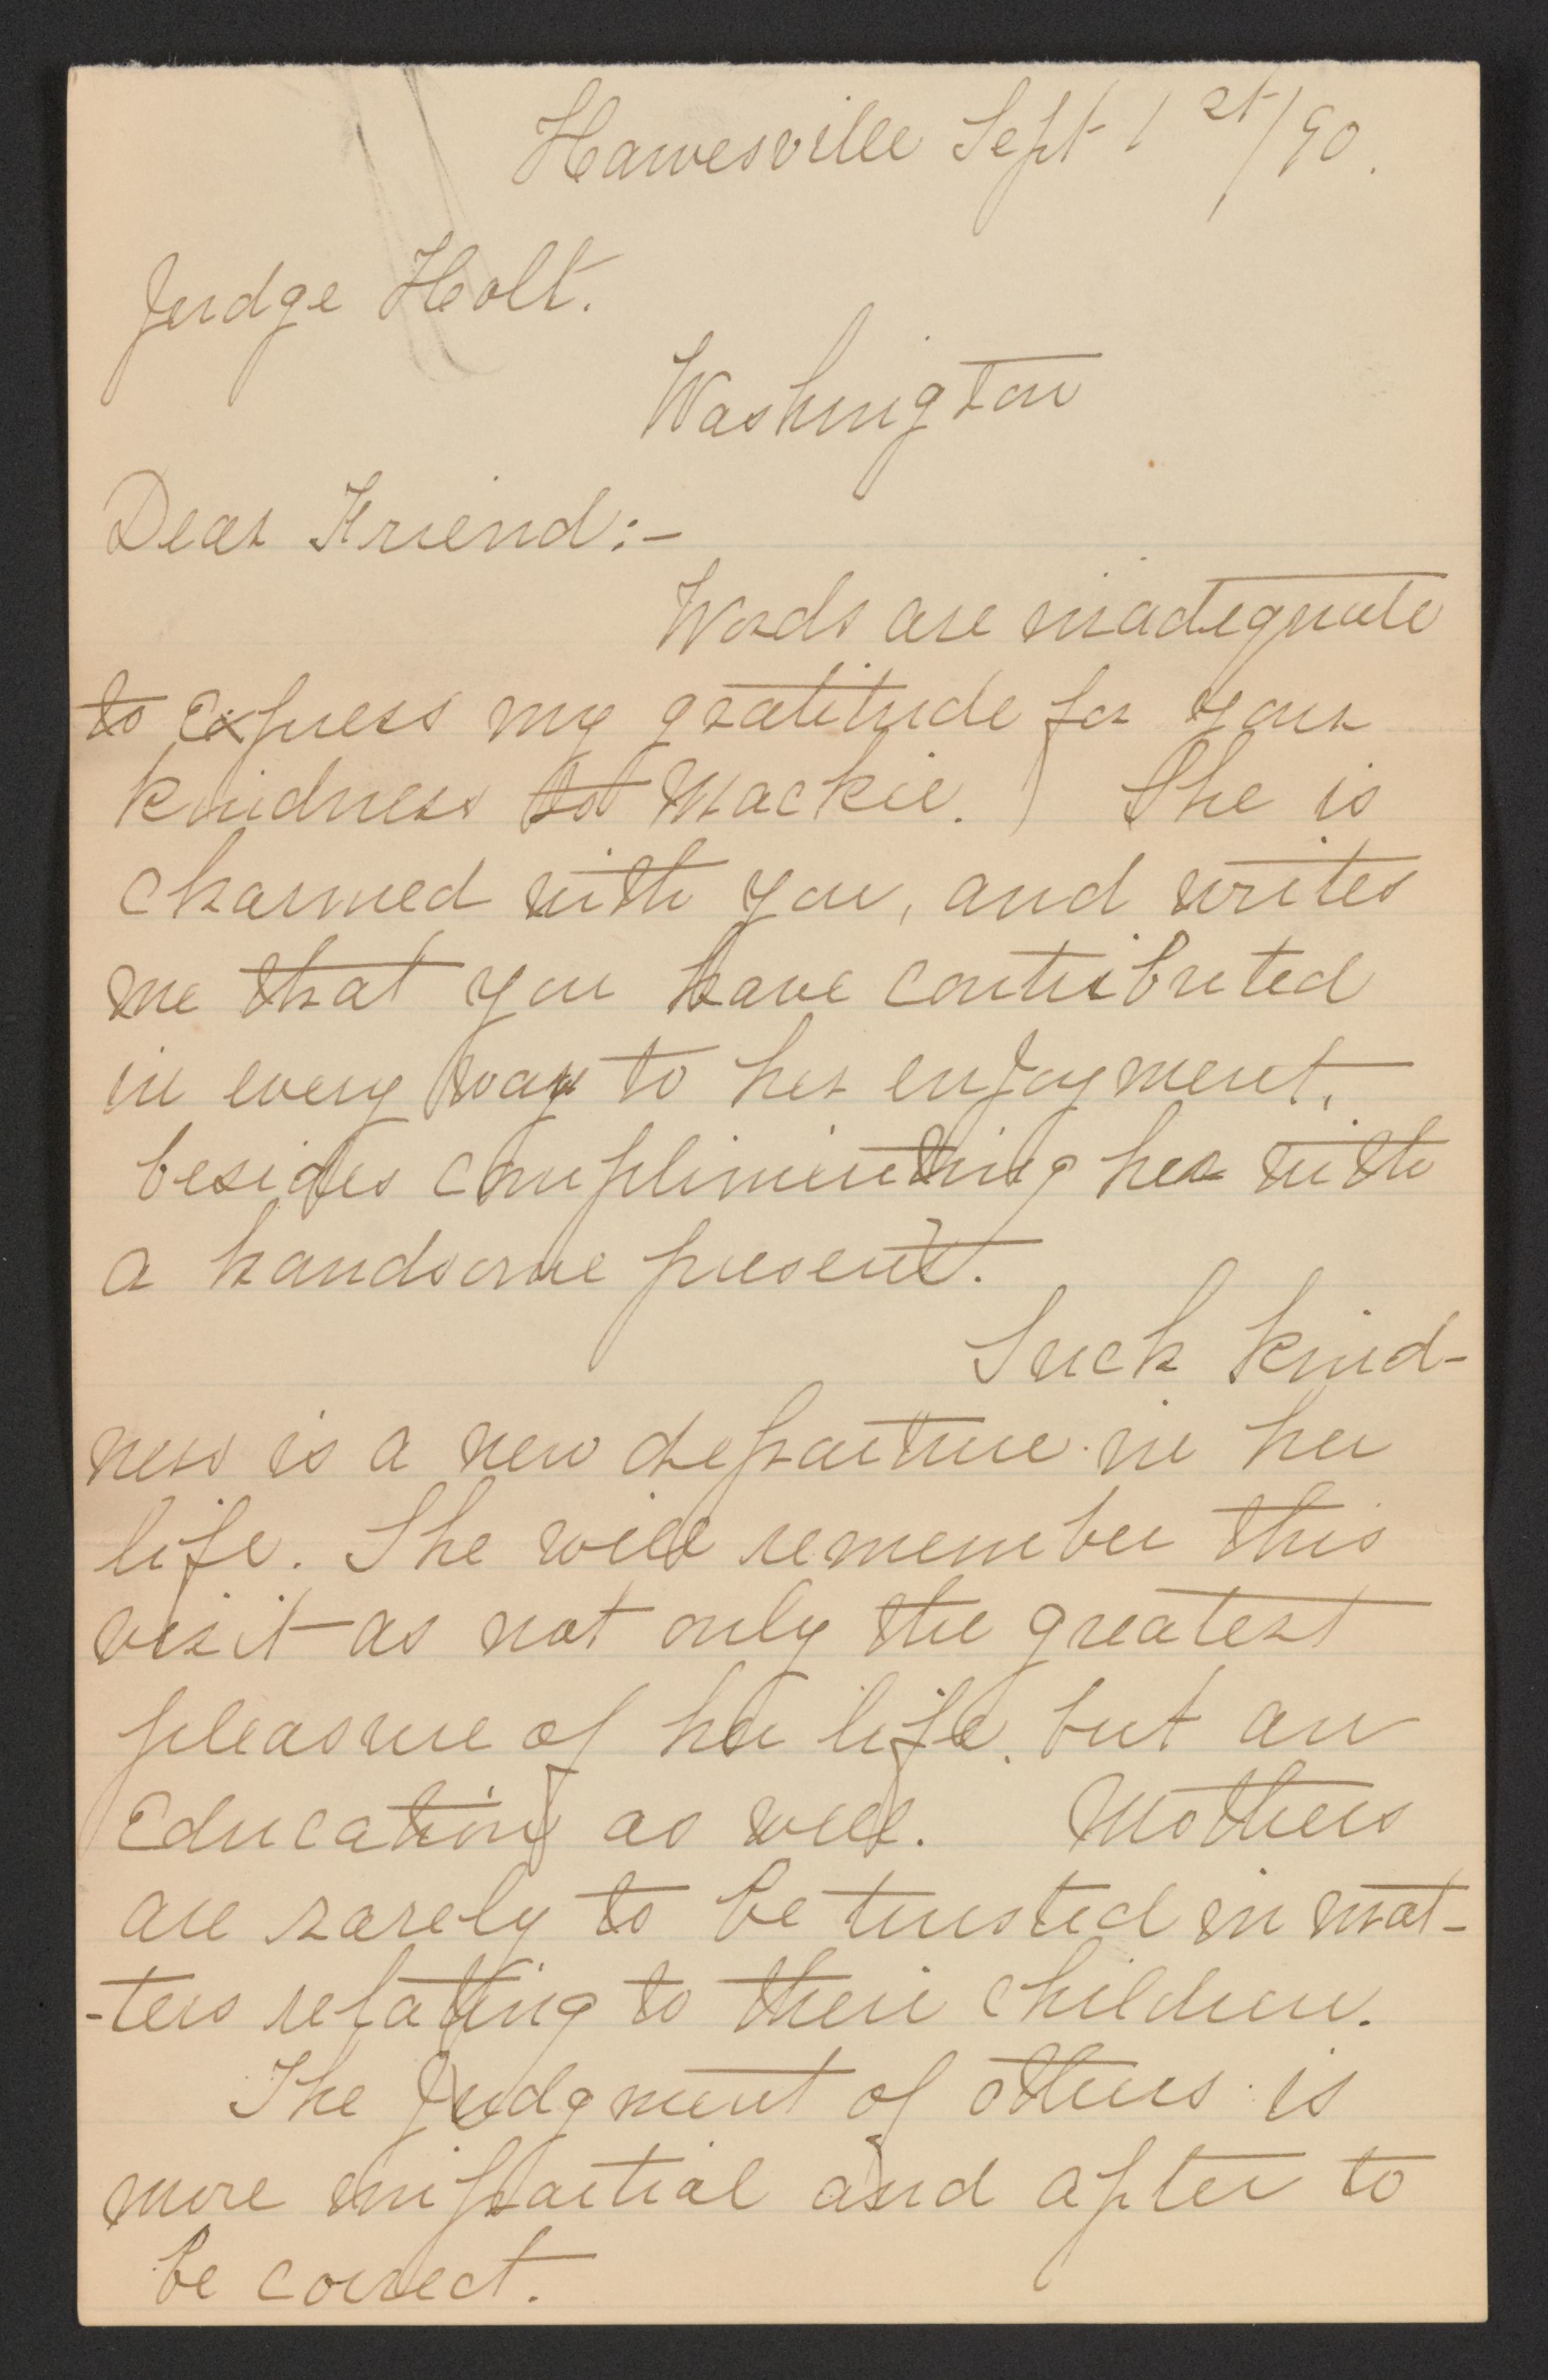 Hawesville Sept 1st/90.
Judge Holt.
Washington
Dear Friend:-
Words are inadequate
to express my gratitude for your
kindness to Mackie. She is
charmed with you, and writes
me that you have contributed
in every way to her enjoyment,
besides complimenting her with
a handsome present.
Such kind-
ness is a new departure in her
life. She will remember this
visit as not only the greatest
pleasure of her life, but an
Education as well. Mothers
are rarely to be trusted in mat-
-ters relating to their children.
The Judgment of others is
more impartial and apter to
be correct.